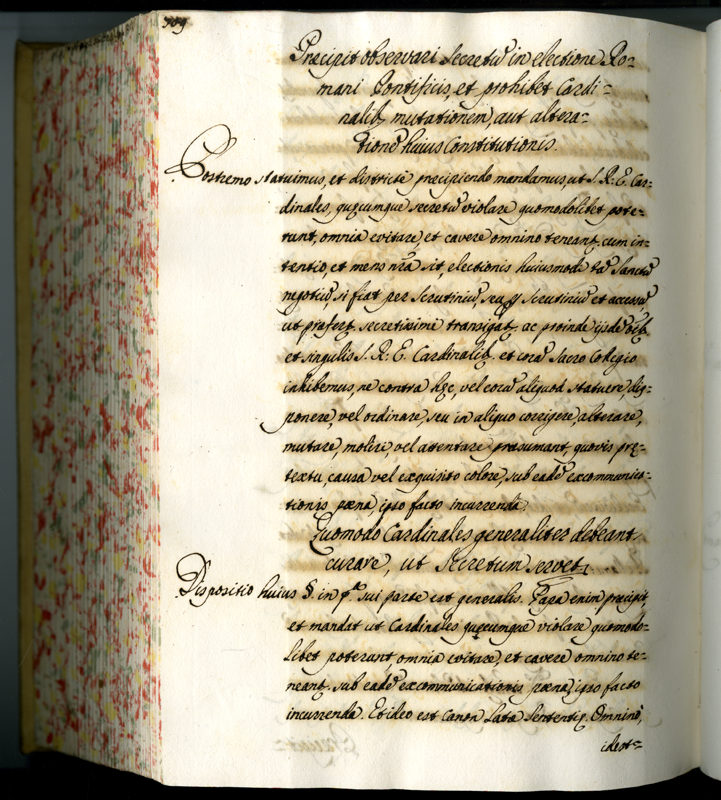 Præcipit observari Secretũ in electione Ro=
mani Pontificis, et prohibet Cardi=
nalib. mutationem, aut altera=
tionẽ huius Constitutionis.
Postremo statuimus, et districtè præcipiendo mandamus, ut S. R. E. Car=
dinales, quæcumque secretũ violare quomodolibet pote=
runt, omnia evitare, et cavere omnino teneant. cum in=
tentio, et mens nrã sit, electionis huiusmodi tã Sanctũ
negotiũ, si fiat per Scrutiniũ, seu ꝑ Scrutiniũ et accessũ,
ut præfert. secretissimè transigat. ac proinde ijsdẽ oib.
et singulis S. R. E. Cardinalib. et corã Sacro Collegio
inhibemus, ne contra hęc, vel eorũ aliquod statuere, dis=
ponere, vel ordinare, seu in aliquo corrigere, alterare,
mutare, moliri, vel attentare præsumant, quovis prę=
textu, causa vel exquisito colore, sub eadẽ excommunica=
tionis pœna, ipso facto incurrenda.
Quomodo Cardinales generaliter debeant
curare, ut Secretum servet.
Dispositio huius §. in pª. sui parte est generalis. Papa enim præcipit,
et mandat ut Cardinales quęcumque violare quomodo=
libet poterunt, omnia evitare, et cavere omnino te=
neant. sub eadẽ excommunicationis pœna, ipso facto
incurrenda. Et ideo est Canon Latæ Sententię. Omninò,
idest=